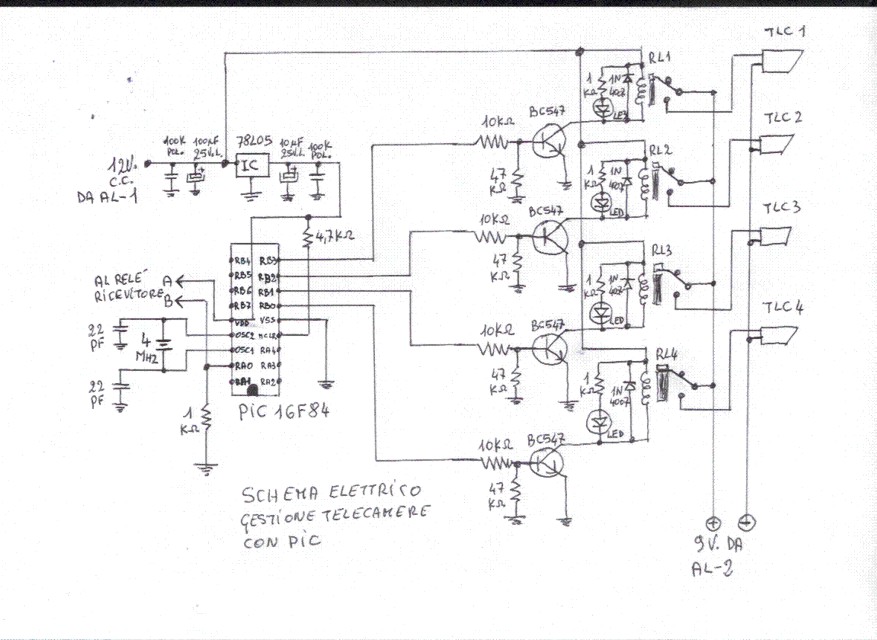 TLC 1
RL1
1
KΩ
1N
4007
LED
10KΩ
BC547
47
KΩ
100K
POL.
100µF
25V.L.
78L05
IC
10µF
25V.L.
100K
POL.
12V.
C.C.
DA AL-1
TLC 2
RL2
1
KΩ
1N
4007
LED
10KΩ
BC547
47
KΩ
4,7KΩ
TLC 3
RL3
1
KΩ
1N
4007
LED
AL RELÈ
RICEVITORE
A
B
RB4
RB5
RB6
RB7
VDD
OSC2
OSC1
RA0
RA1
RB3
RB2
RB1
RB0
VSS
MCLR
RA4
RA3
RA2
22
PF
4
MHz
22
PF
1
KΩ
PIC 16F84
TLC 4
RL4
10KΩ
BC547
47
KΩ
1
KΩ
1N
4007
LED
10KΩ
BC547
47
KΩ
SCHEMA ELETTRICO
GESTIONE TELECAMERE
CON PIC
+
-
9V. DA
AL-2